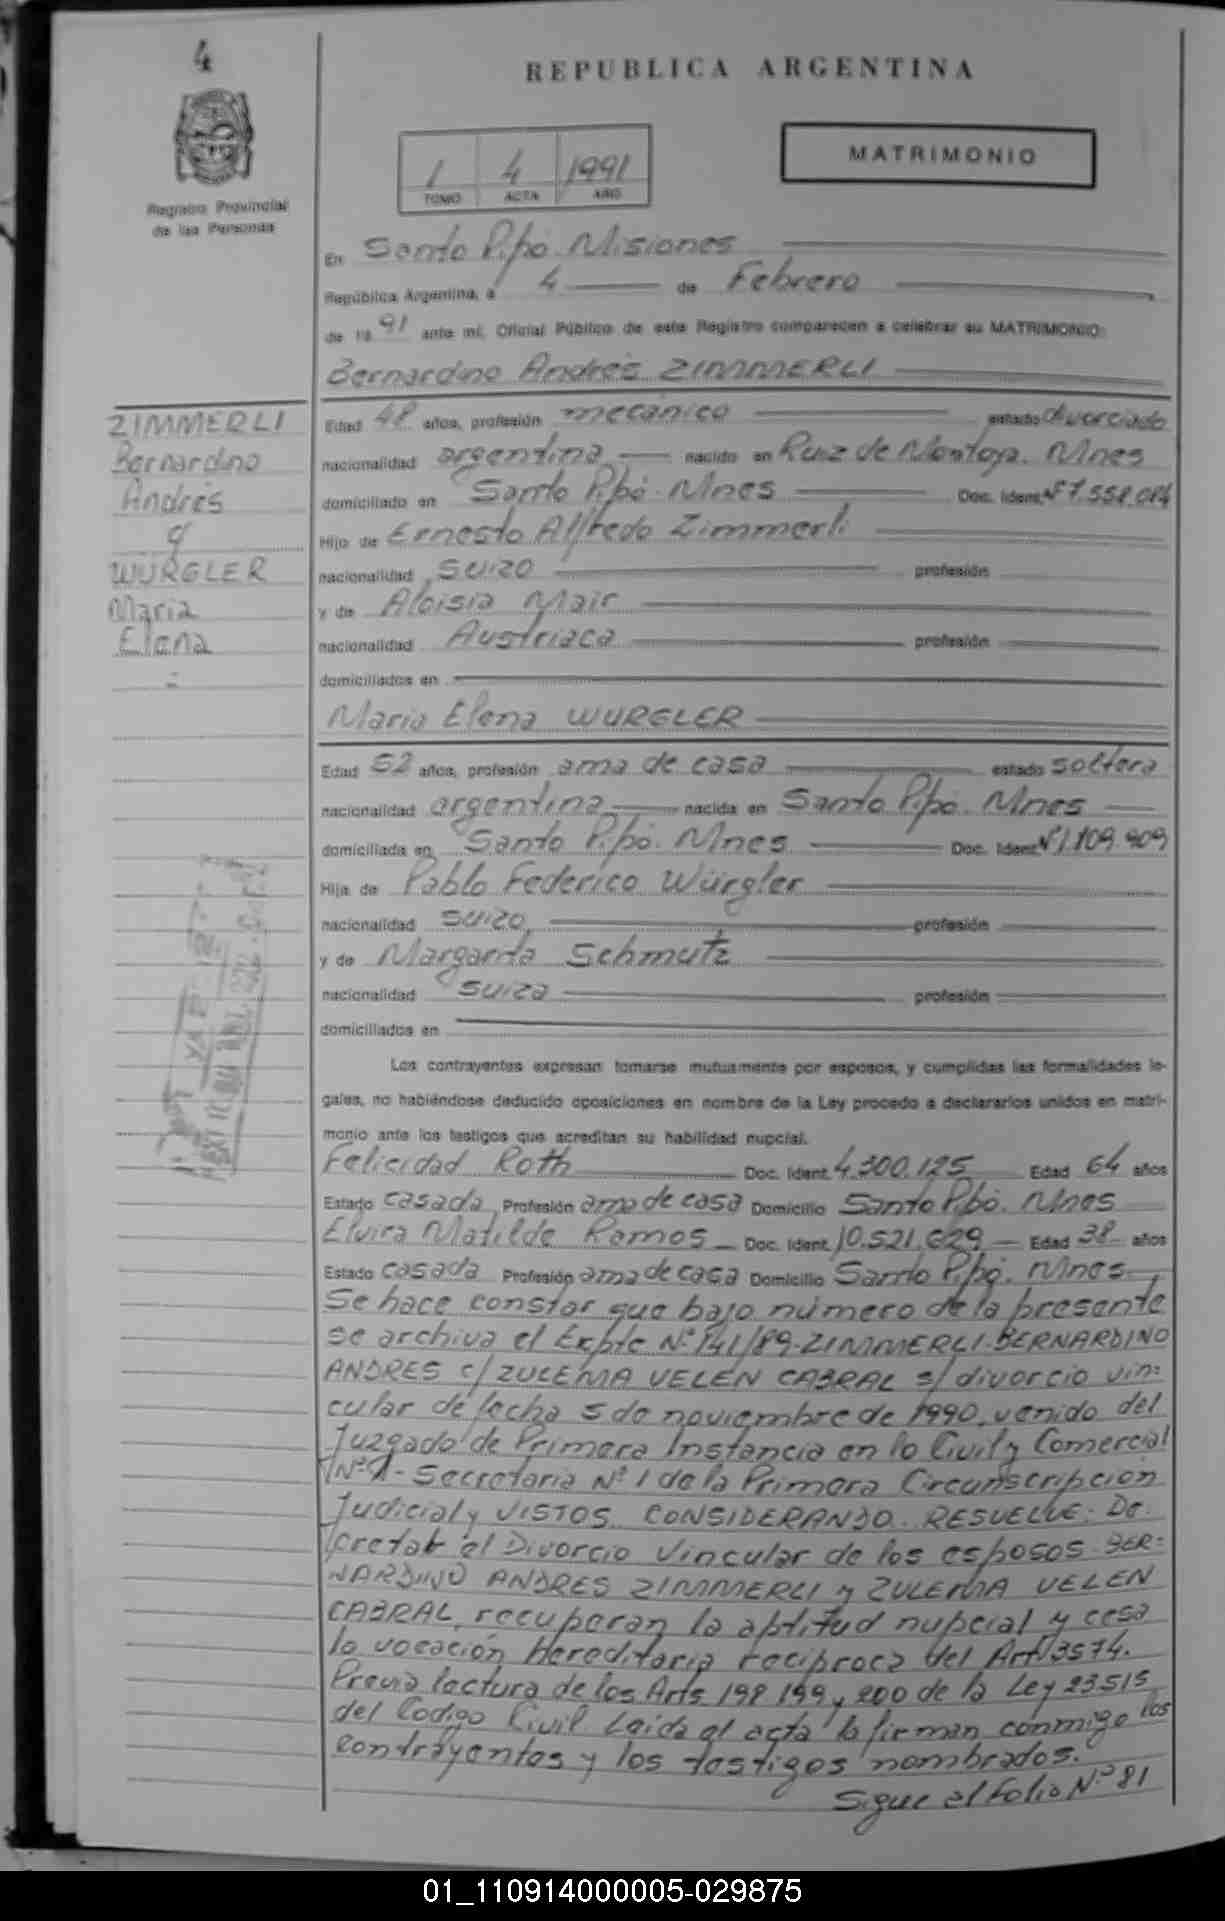 4
Registro Provincial
de las Personas
REPUBLICA ARGENTINA
1 4 1991
TOMO ACTA AÑO
MATRIMONIO
En Santo Pipó. Misiones
República Argentina, a 4 de Febrero
de 19 91 ante mí, Oficial Público de este Registro comparecen a celebrar su MATRIMONIO:
Bernardino Andrés ZIMMERLI
ZIMMERLI
Bernardino
Andrés
y
WÜRGLER
Maria
Elena
Edad 48 años, profesión mecánico estado divorciado
nacionalidad argentina nacido en Ruiz de Montoya. Mnes
domiciliado en Santo Pipó. Mnes Doc. Ident. Nº 7.558.084
Hijo de Ernesto Alfredo Zimmerli
nacionalidad suizo profesión
y de Aloisia Mair
nacionalidad Austriaca profesión
domiciliados en
Maria Elena WURGLER
Edad 52 años, profesión ama de casa estado soltera
nacionalidad argentina nacida en Santo Pipó. Mnes
domiciliada en Santo Pipó. Mnes Doc. Ident. Nº 1.109.909
Hija de Pablo Federico Würgler
nacionalidad suizo profesión
y de Margarita Schmutz
nacionalidad suiza profesión
domiciliados en
Los contrayentes expresan tomarse mutuamente por esposos, y cumplidas las formalidades le-
gales, no habiéndose deducido oposiciones en nombre de la Ley procedo a declararlos unidos en matri-
monio ante los testigos que acreditan su habilidad nupcial.
Felicidad Roth Doc. Ident. 4.300.125 Edad 64 años
Estado casada Profesión ama de casa Domicilio Santo Pipó. Mnes
Elvira Matilde Ramos Doc. Ident. 10.521.629 Edad 38 años
Estado casada Profesión ama de casa Domicilio Santo Pipó. Mnes
Se hace constar que bajo número de la presente
se archiva el Expte Nº 141/89-ZIMMERLI-BERNARDINO
ANDRES c/ ZULEMA VELEN CABRAL s/ divorcio vin=
cular de fecha 5 de noviembre de 1990, venido del
Juzgado de Primera Instancia en lo Civil y Comercial
Nº 1 - Secretaria Nº 1 de la Primera Circunscripción
Judicial y VISTOS. CONSIDERANDO. RESUELVE: De-
cretar el Divorcio Vincular de los esposos BER=
NARDINO ANDRES ZIMMERLI y ZULEMA VELEN
CABRAL, recuperan la aptitud nupcial y cesa
la vocación hereditaria recíproca del Art 3574.
Previa lectura de los Arts 198 199 y 200 de la Ley 23515
del Codigo Civil. Leida el acta la firman conmigo los
contrayentes y los testigos nombrados.
Sigue al Folio Nº 81
01_110914000005-029875